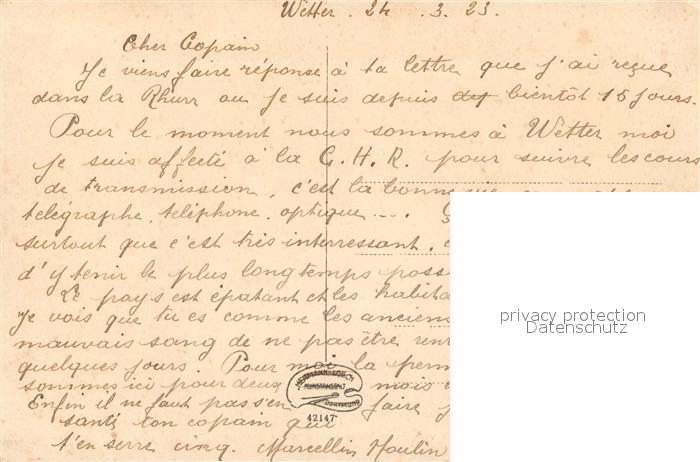 Wetter. 24.3.23.
Cher Copain
Je viens faire réponse à ta lettre que j'ai reçue
dans la Rhurr ou je suis depuis bientôt 15 jours.
Pour le moment nous sommes à Wetter moi
je suis affecté à la C.H.R. pour suivre les cours
de transmission, c'est la bonne
telégraphe, teléphone, optique ....
surtout que c'est très interressant,
d'y tenir le plus longtemps poss
Le pays est épatant et les habita
Je vois que tu es comme les anciens
mauvais sang de ne pas être
quelques jours. Pour moi la perm
sommes ici pour deux mois
Enfin il ne faut pas s'en faire
santé ton copain qui
t'en serre cinq. Marcellin Houlin
privacy protection
Datenschutz
HERMANN LORCH
KUNSTANSTALT
DORTMUND
42147